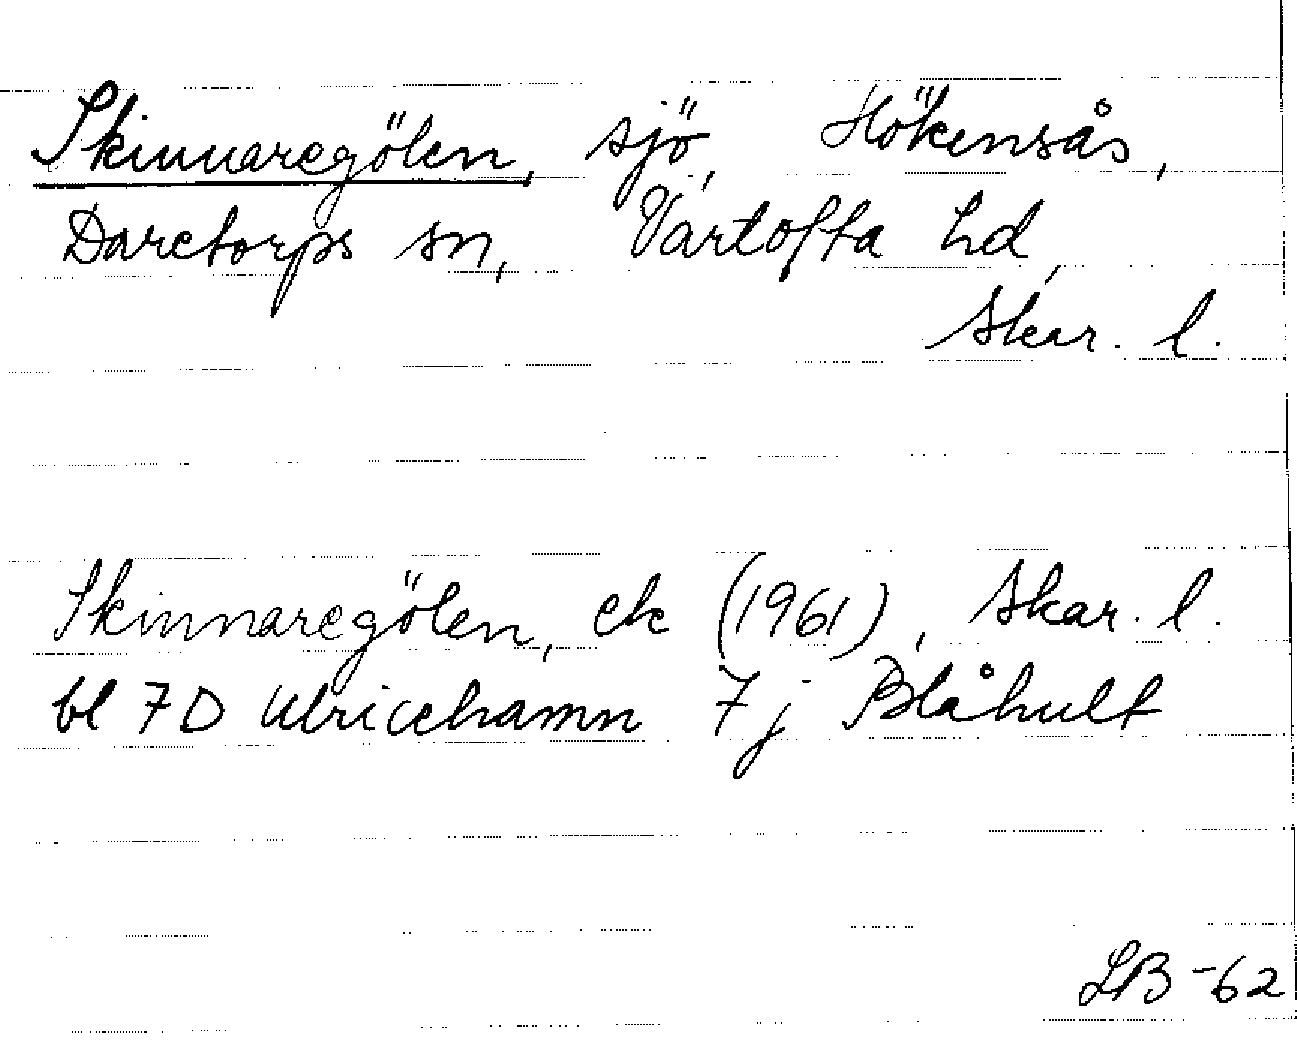 Skinnaregölen, sjö, Hökensås,
Daretorps sn, Vartofta hd,
Skar. l.
Skinnaregölen, ek (1961), Skar. l.
bl 7D Ulricehamn 7j Blåhult
LB -62